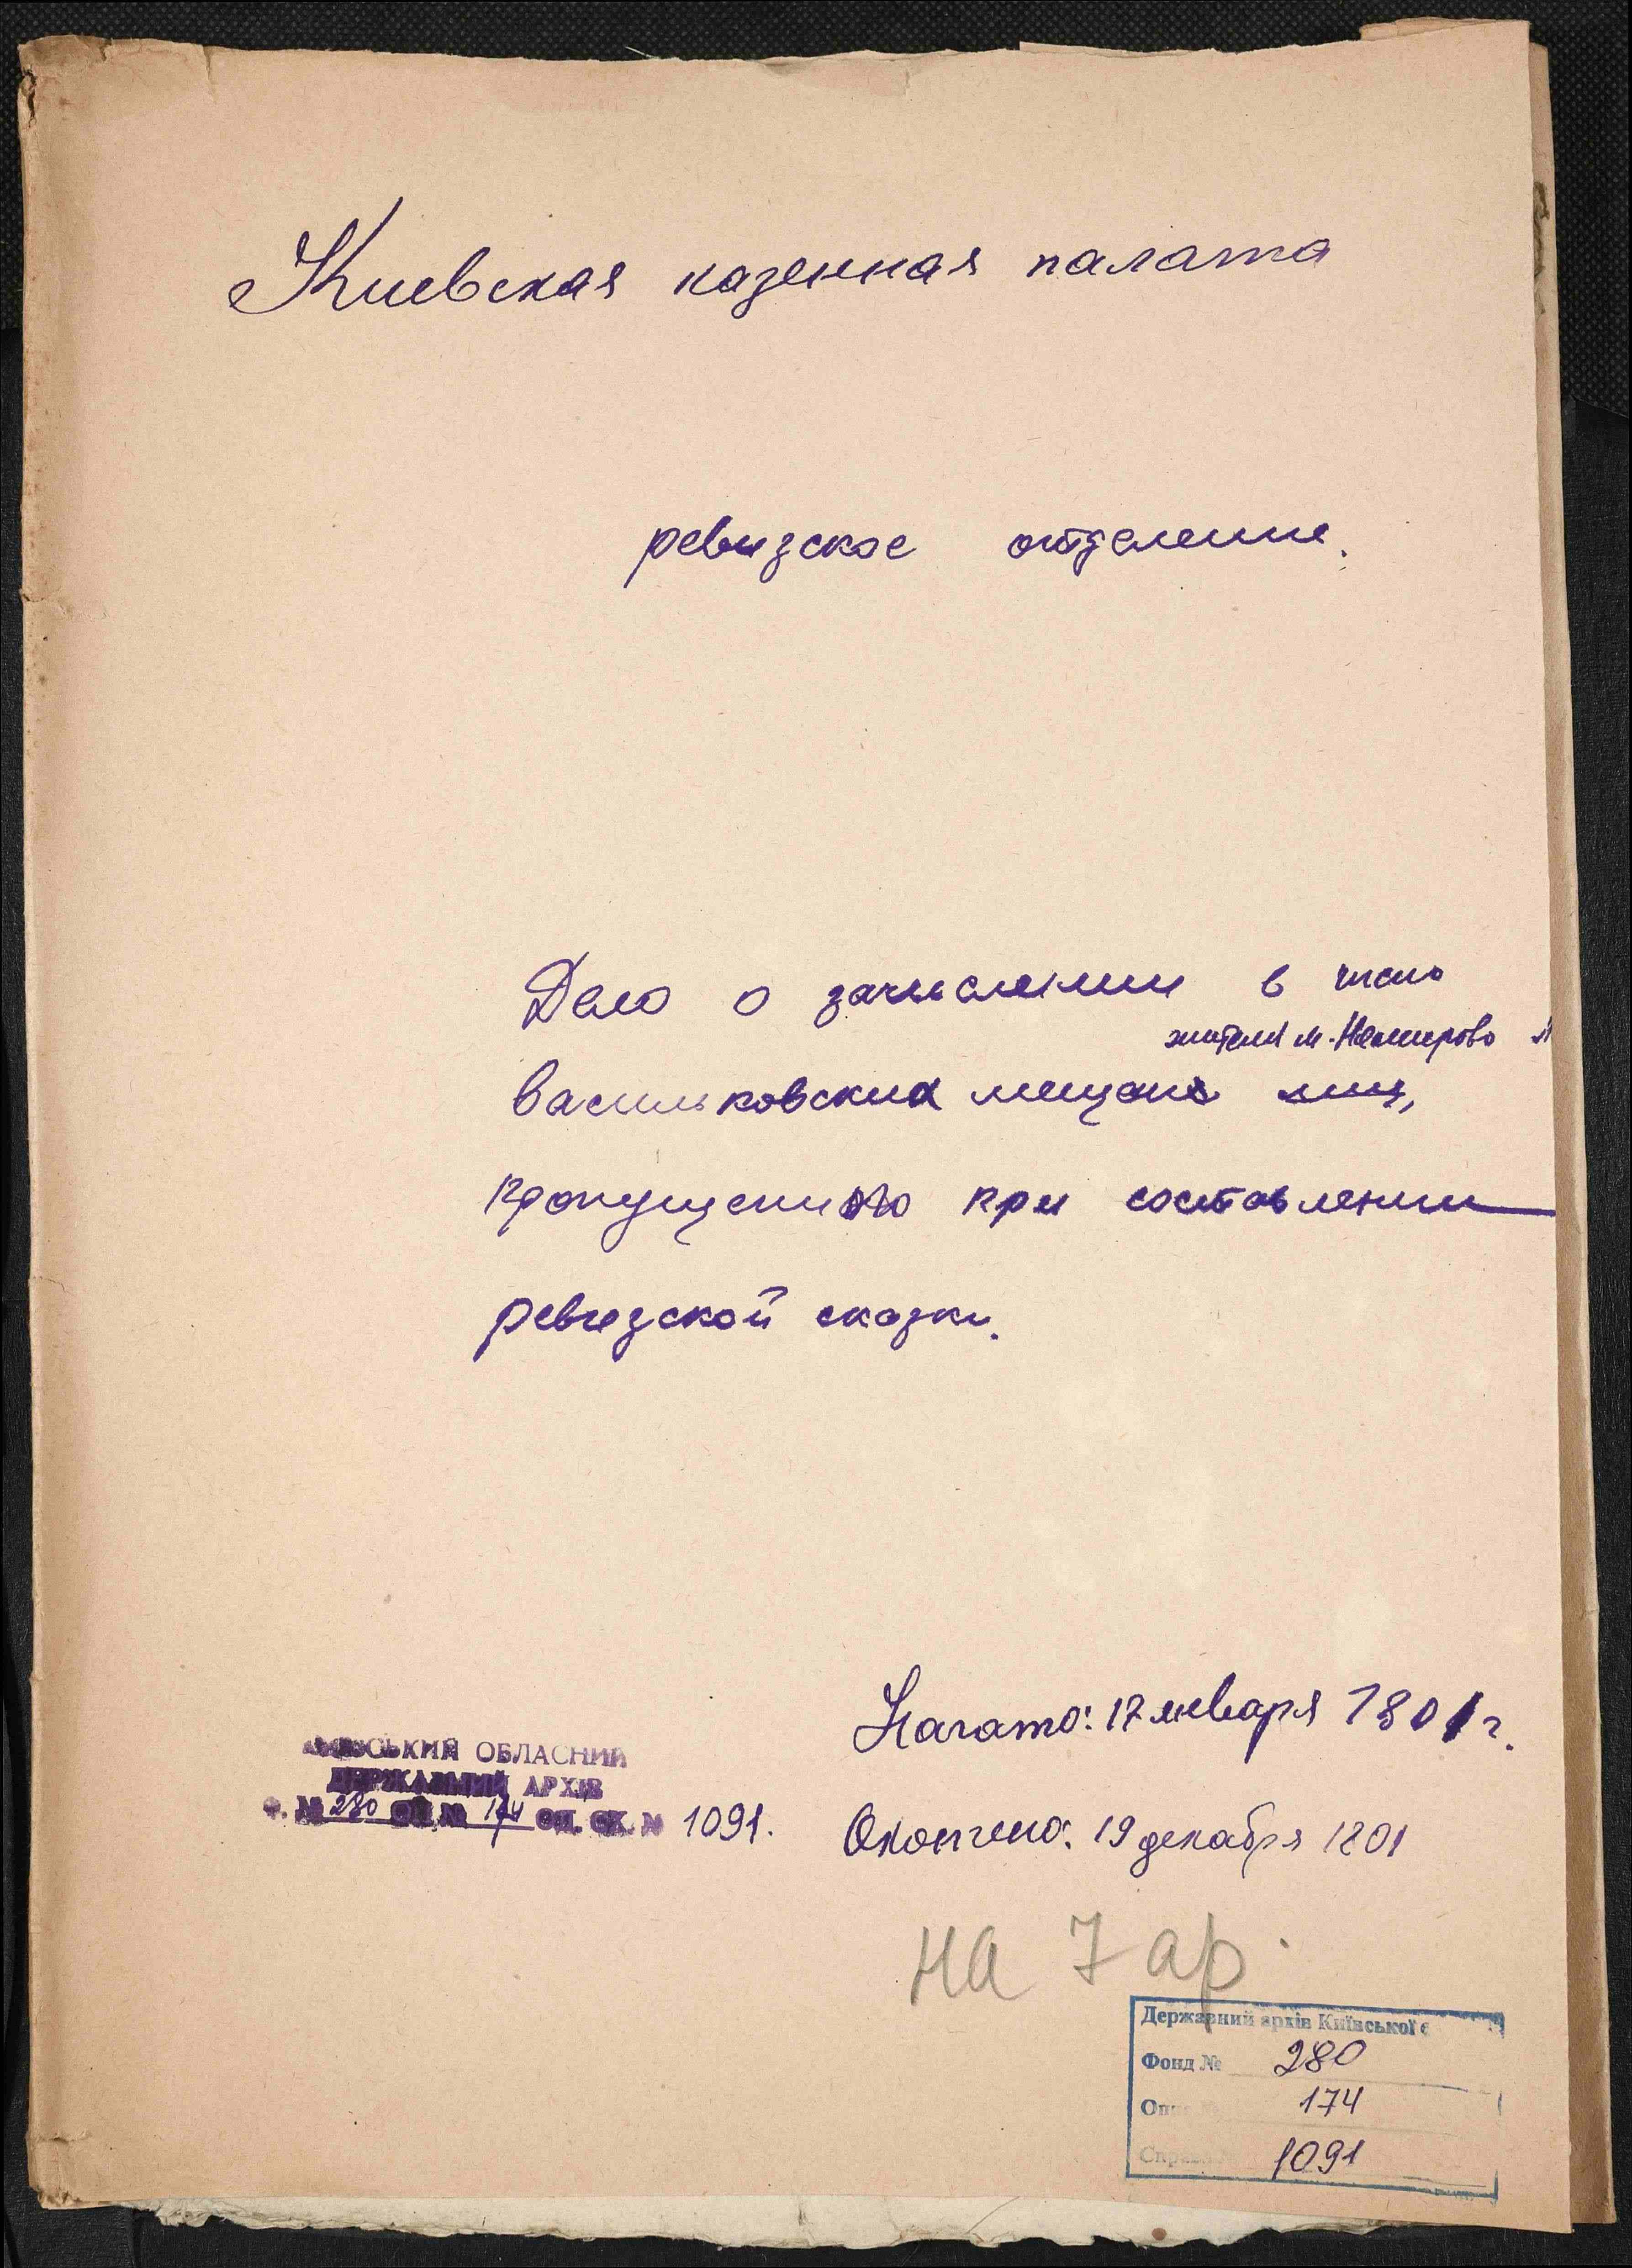 Киевская казенная палата
ревизское отделение.
Дело о зачислении в число
жителя м. Немирово
васильковских мещан лиц,
пропущенного при составлении
ревизской сказки.
Начато: 17 января 1801 г.
Окончено: 19 декабря 1801
ОБЛАСНИЙ
ДЕРЖАВНИЙ АРХІВ
Ф. № 280 оп. № 174 од. зб. № 1091.
на 7 ар.
Державний архів Київської
Фонд № 280
Опис 174
Справа 1091